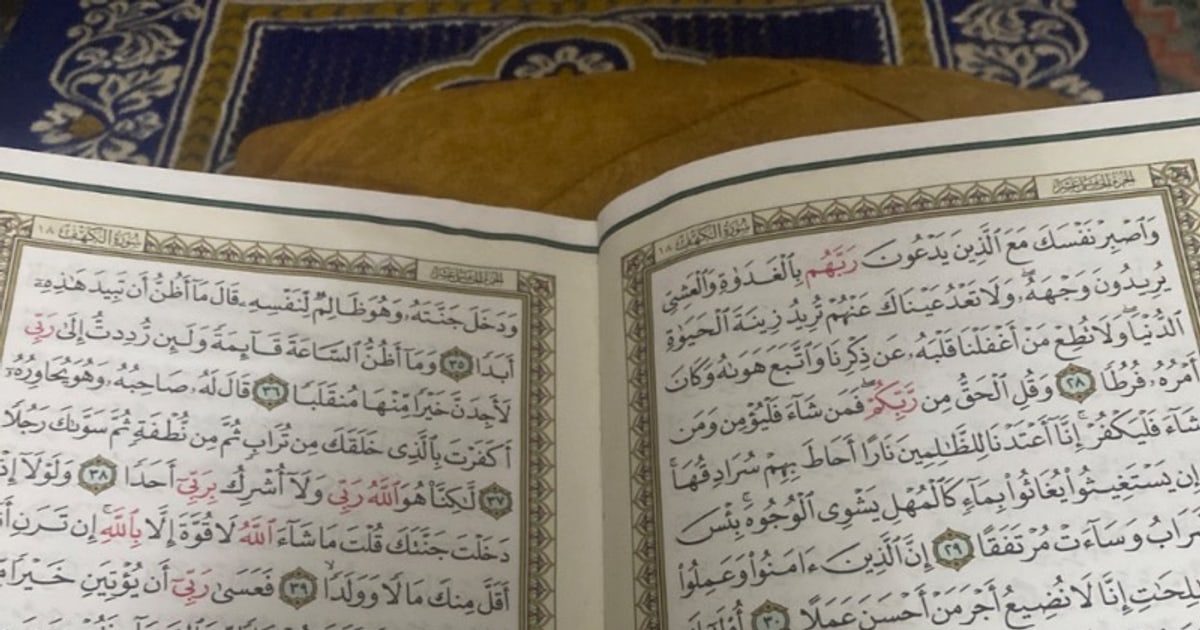 الجزء الخامس عشر
سورة الكهف ١٨
وَٱصْبِرْ نَفْسَكَ مَعَ ٱلَّذِينَ يَدْعُونَ رَبَّهُم بِٱلْغَدَوٰةِ وَٱلْعَشِىِّ
يُرِيدُونَ وَجْهَهُۥ ۖ وَلَا تَعْدُ عَيْنَاكَ عَنْهُمْ تُرِيدُ زِينَةَ ٱلْحَيَوٰةِ
ٱلدُّنْيَا ۖ وَلَا تُطِعْ مَنْ أَغْفَلْنَا قَلْبَهُۥ عَن ذِكْرِنَا وَٱتَّبَعَ هَوَىٰهُ وَكَانَ
أَمْرُهُۥ فُرُطًا ٢٨ وَقُلِ ٱلْحَقُّ مِن رَّبِّكُمْ ۖ فَمَن شَآءَ فَلْيُؤْمِن وَمَن
شَآءَ فَلْيَكْفُرْ ۚ إِنَّآ أَعْتَدْنَا لِلظَّٰلِمِينَ نَارًا أَحَاطَ بِهِمْ سُرَادِقُهَا ۚ
إِن يَسْتَغِيثُوا۟ يُغَاثُوا۟ بِمَآءٍ كَٱلْمُهْلِ يَشْوِى ٱلْوُجُوهَ ۚ بِئْسَ
وَسَآءَتْ مُرْتَفَقًا ٢٩ إِنَّ ٱلَّذِينَ ءَامَنُوا۟ وَعَمِلُوا۟
إِنَّا لَا نُضِيعُ أَجْرَ مَنْ أَحْسَنَ عَمَلًا ٣٠
الجزء الخامس عشر
سورة الكهف ١٨
وَدَخَلَ جَنَّتَهُۥ وَهُوَ ظَالِمٌ لِّنَفْسِهِۦ قَالَ مَآ أَظُنُّ أَن تَبِيدَ هَٰذِهِۦٓ
أَبَدًا ٣٥ وَمَآ أَظُنُّ ٱلسَّاعَةَ قَآئِمَةً وَلَئِن رُّدِدتُّ إِلَىٰ رَبِّى
لَأَجِدَنَّ خَيْرًا مِّنْهَا مُنقَلَبًا ٣٦ قَالَ لَهُۥ صَاحِبُهُۥ وَهُوَ يُحَاوِرُهُۥٓ
أَكَفَرْتَ بِٱلَّذِى خَلَقَكَ مِن تُرَابٍ ثُمَّ مِن نُّطْفَةٍ ثُمَّ سَوَّىٰكَ رَجُلًا
٣٧ لَّٰكِنَّا۠ هُوَ ٱللَّهُ رَبِّى وَلَآ أُشْرِكُ بِرَبِّىٓ أَحَدًا ٣٨ وَلَوْلَآ إِذْ
دَخَلْتَ جَنَّتَكَ قُلْتَ مَا شَآءَ ٱللَّهُ لَا قُوَّةَ إِلَّا بِٱللَّهِ ۚ إِن تَرَنِ
أَقَلَّ مِنكَ مَالًا وَوَلَدًا ٣٩ فَعَسَىٰ رَبِّىٓ أَن يُؤْتِيَنِ خَيْرًا